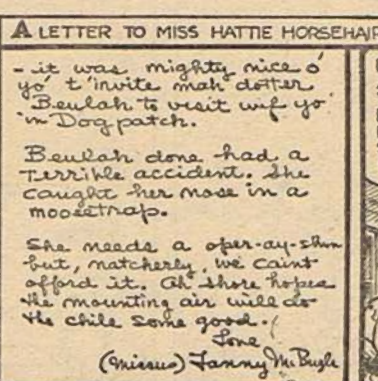 A LETTER TO MISS HATTIE HORSEHAIR
- it was mighty nice o'
yo' t'invite mah dotter
Beulah to visit wif yo'
in Dogpatch.
Beulah done had a
terrible accident. She
caught her nose in a
moosetrap.
She needs a oper-ay-shun
but, natcherly, we caint
afford it. Ah shore hopes
the mounting air will do
the chile some good.
Love
(Missus) Fanny McBugle